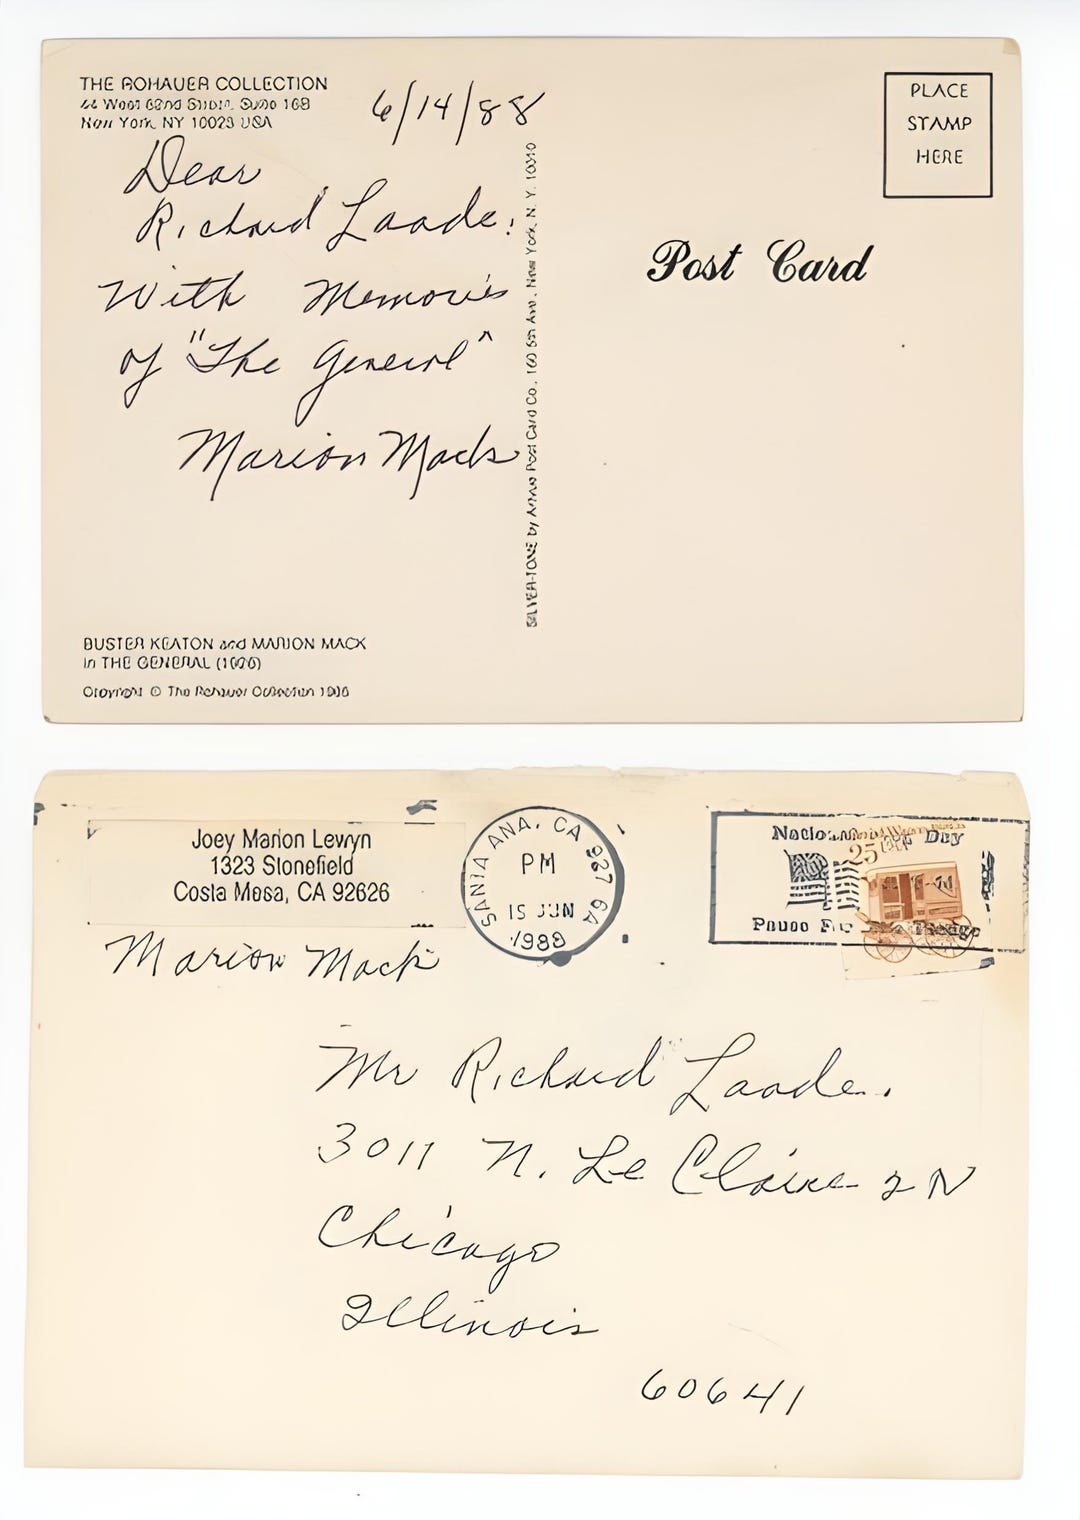 THE ROHAUER COLLECTION
New York, NY 10023 USA
6/14/88
PLACE
STAMP
HERE
Dear
Richard Laade:
With Memories
of "The General"
Marion Mack
Post Card
SILVER-TONE by Post Card Co., 160 5th Ave., New York, N. Y. 10010
BUSTER KEATON and MARION MACK
in THE GENERAL
Copyright © The Rohauer Collection
Joey Marion Lewyn
1323 Stonefield
Costa Mesa, CA 92626
SANTA ANA, CA 927
PM
15 JUN
1988
Day
25
Pause For
Marion Mack
Mr Richard Laade.
3011 N. Le Claire 2N
Chicago
Illinois
60641